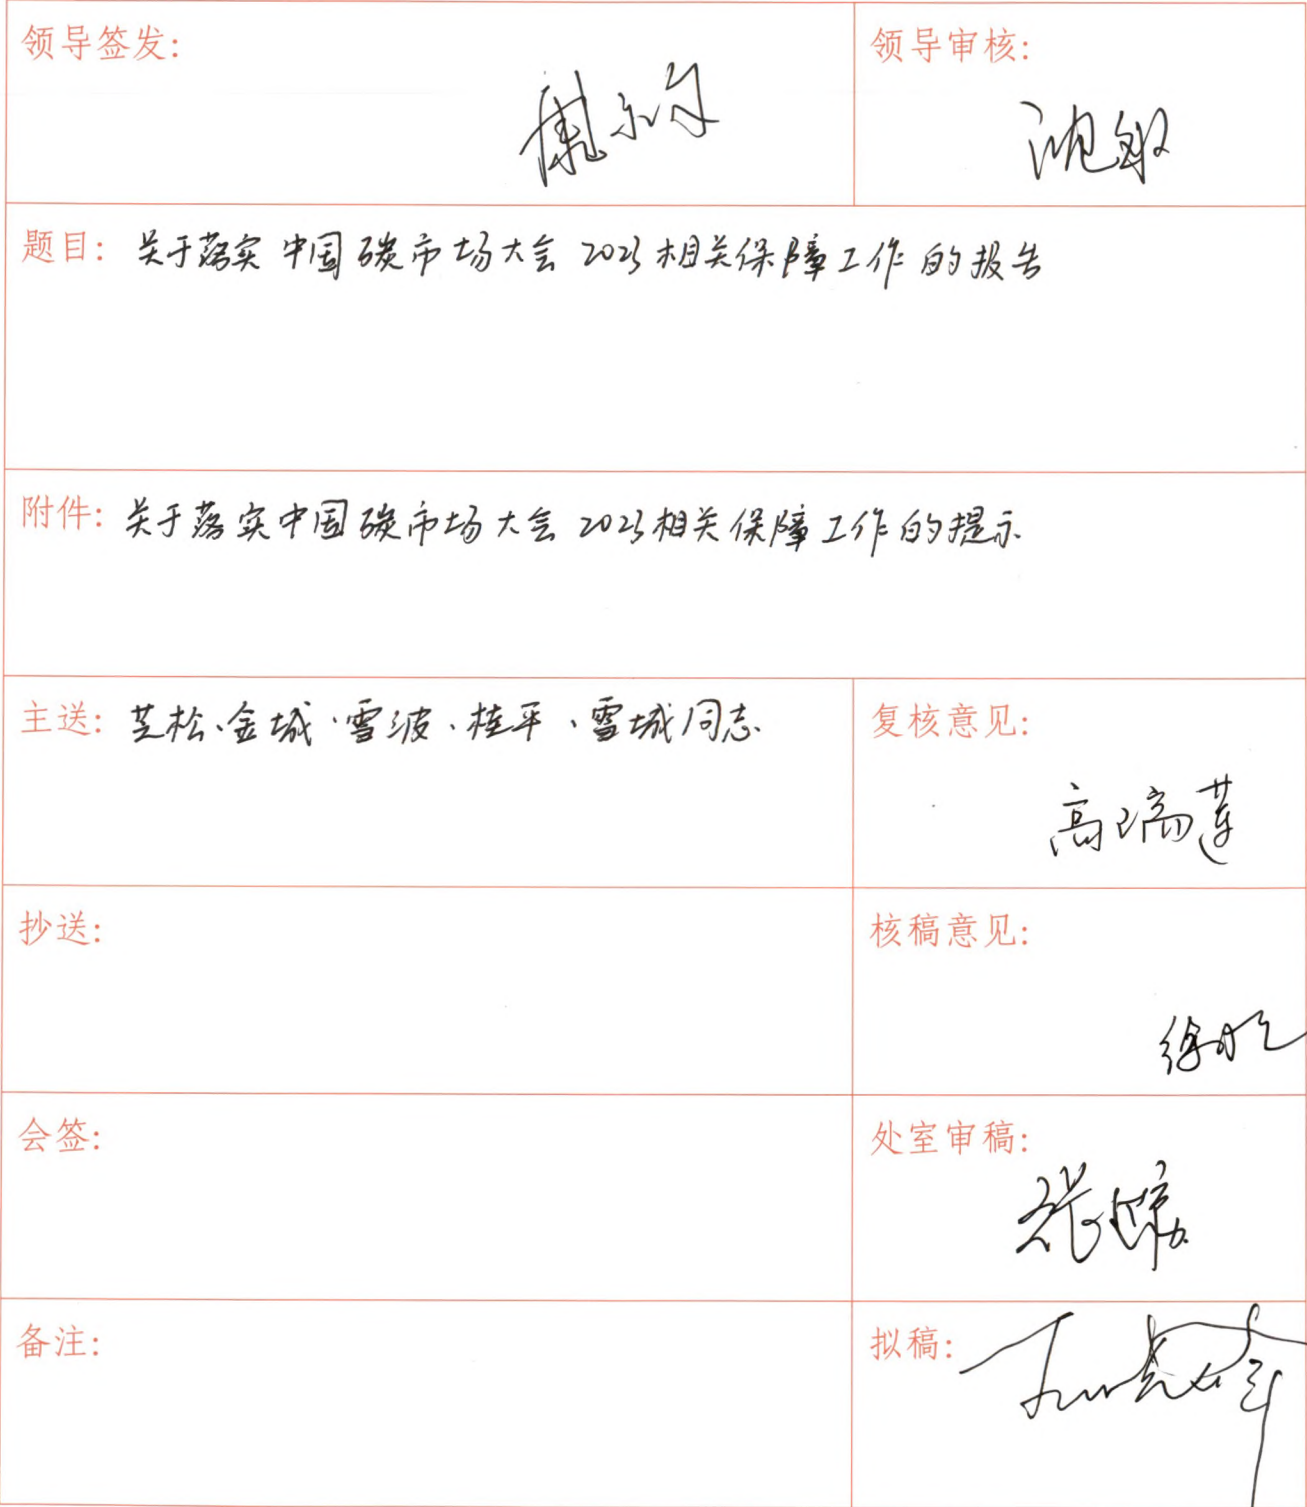 领导签发:
领导审核:
沈敏
题目: 关于落实中国碳市场大会2025相关保障工作的报告
附件: 关于落实中国碳市场大会2025相关保障工作的提示
主送: 芝松、金城、雪波、桂平、雪城同志
复核意见:
高瑞莲
抄送:
核稿意见:
会签:
处室审稿:
备注:
拟稿: